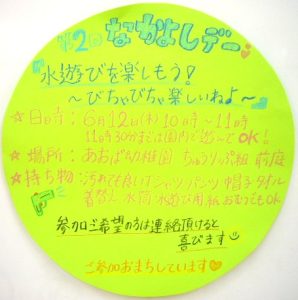 第2回 なかよしデー
水遊びを楽しもう!
～びちゃびちゃ楽しいねよ～
☆日時：6月12日(木)10時～11時
11時30分までは園内で遊んでOK!
☆場所：あおば幼稚園 ちゅうりっぷ組 前庭
☆持ち物：汚れても良いTシャツ パンツ 帽子 タオル
着替え 水筒 水遊び用紙おむつでもOK
参加ご希望の方は連絡頂けると
喜びます
ご参加おまちしています♡